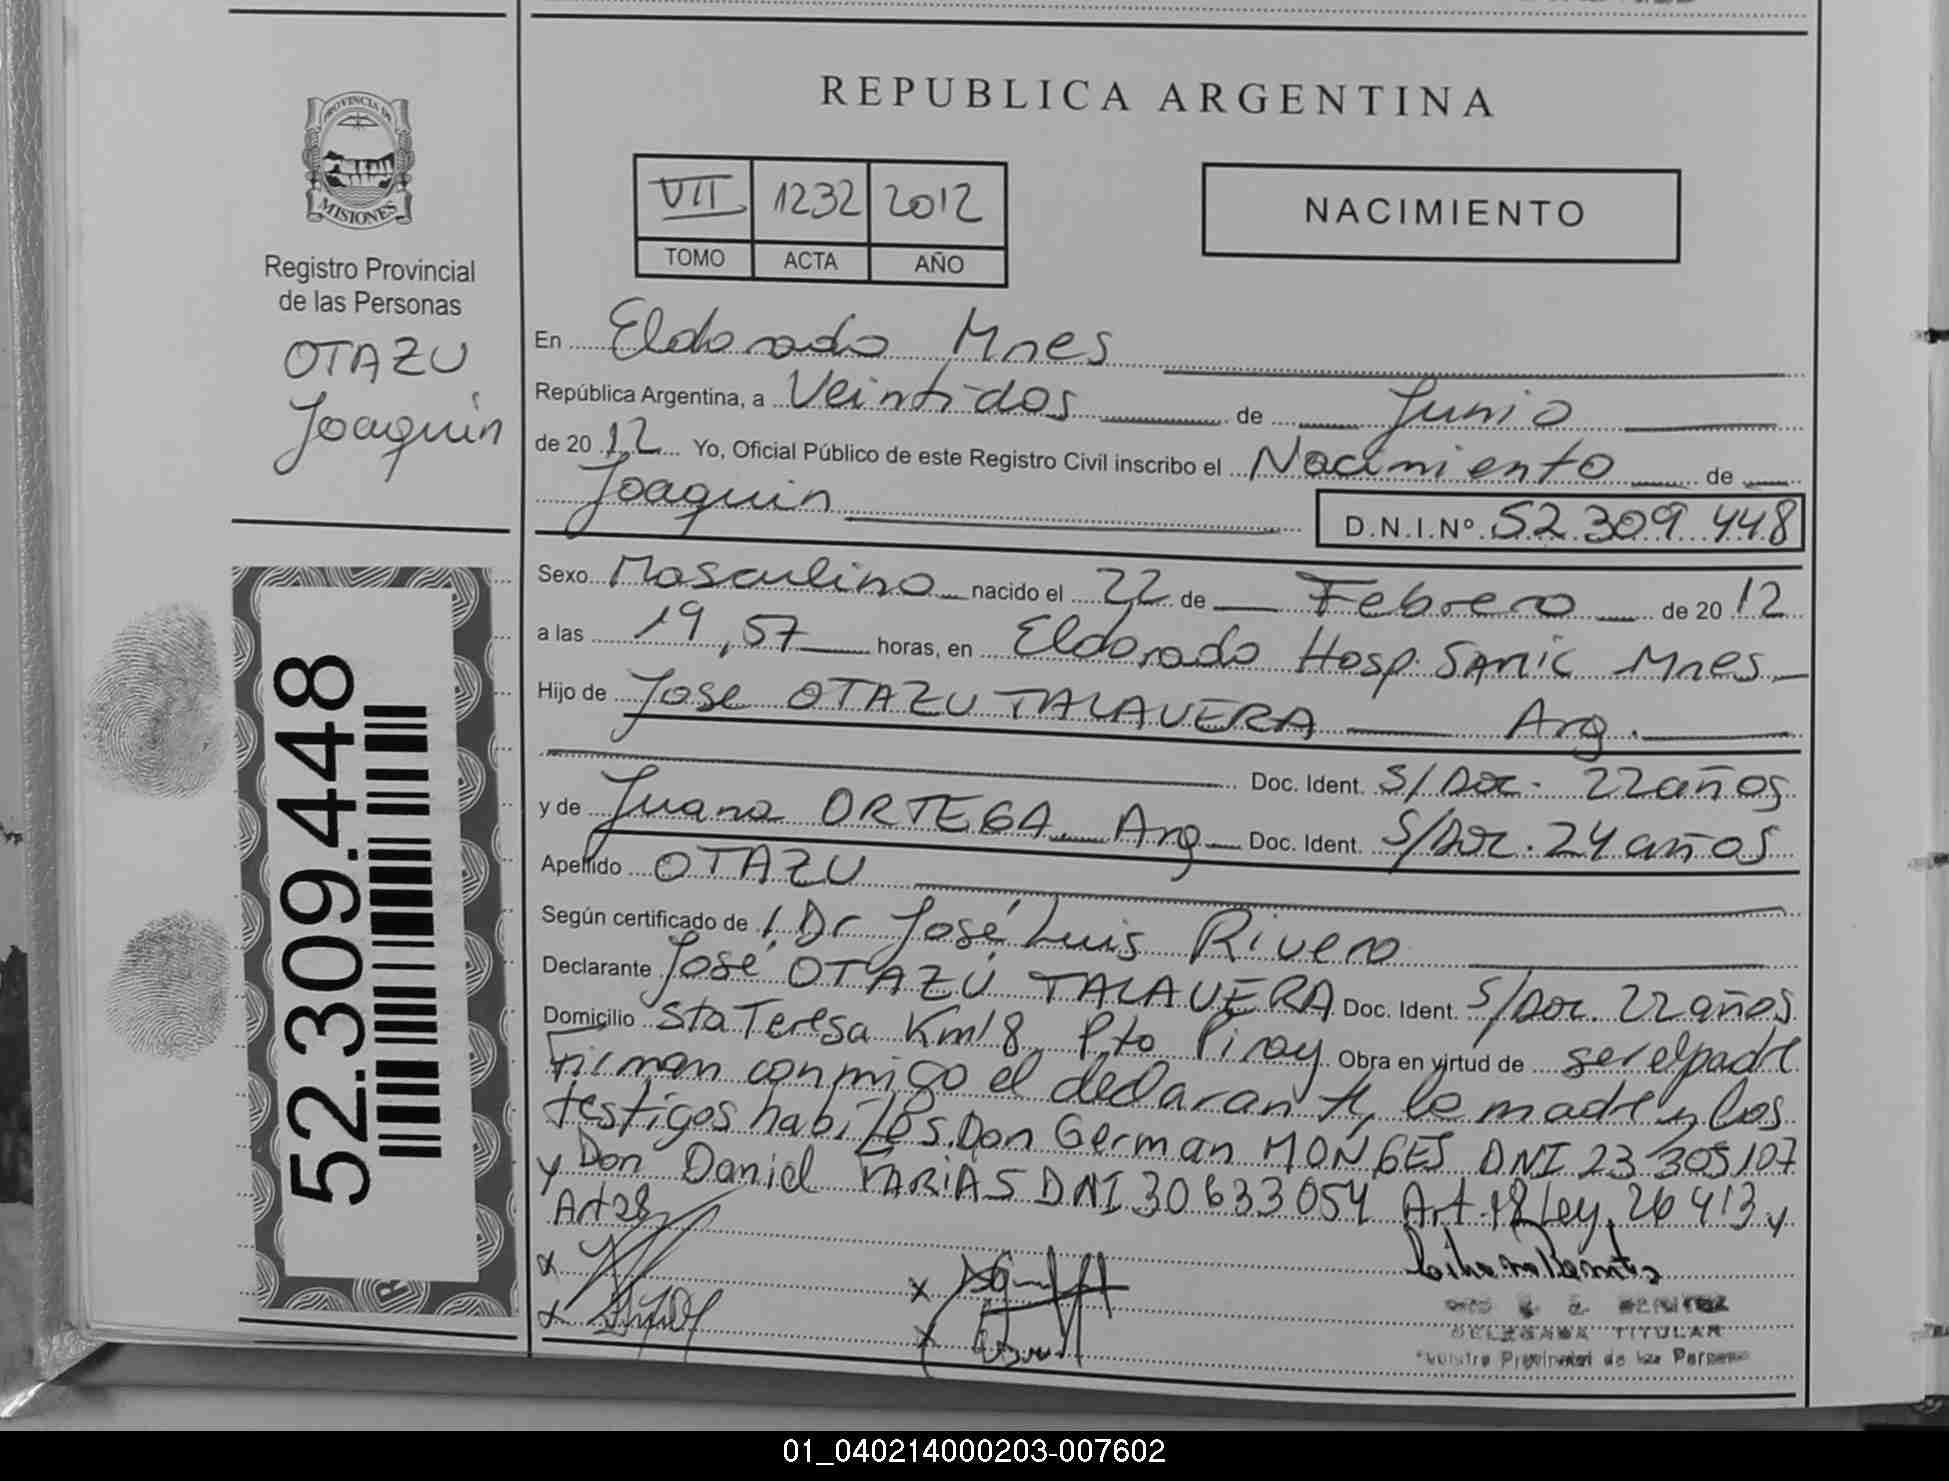 REPUBLICA ARGENTINA
PROVINCIA DE
MISIONES
Registro Provincial
de las Personas
OTAZU
Joaquin
52.309.448
VII 1232 2012
TOMO ACTA AÑO
NACIMIENTO
En Eldorado Mnes
República Argentina, a Veintidos de Junio
de 2012 Yo, Oficial Público de este Registro Civil inscribo el Nacimiento de
Joaquin D.N.I.Nº 52.309.448
Sexo Masculino nacido el 22 de Febrero de 2012
a las 19,57 horas, en Eldorado Hosp. SAMIC Mnes
Hijo de Jose OTAZU TALAVERA Arg.
Doc. Ident. S/Doc. 22 años
y de Juana ORTEGA Arg Doc. Ident. S/Doc. 24 años
Apellido OTAZU
Según certificado de Dr José Luis Rivero
Declarante José OTAZÚ TALAVERA Doc. Ident. S/Doc. 22 años
Domicilio Sta Teresa Km18 Pto Piray Obra en virtud de ser el padre
Firman conmigo el declarante, la madre y los
testigos habiles Don German MONGES DNI 23 305107
y Don Daniel FARIAS DNI 30633054 Art. 18 Ley 26413 y
Art 28
DELEGADA TITULAR
Registro Provincial de las Personas
01_040214000203-007602